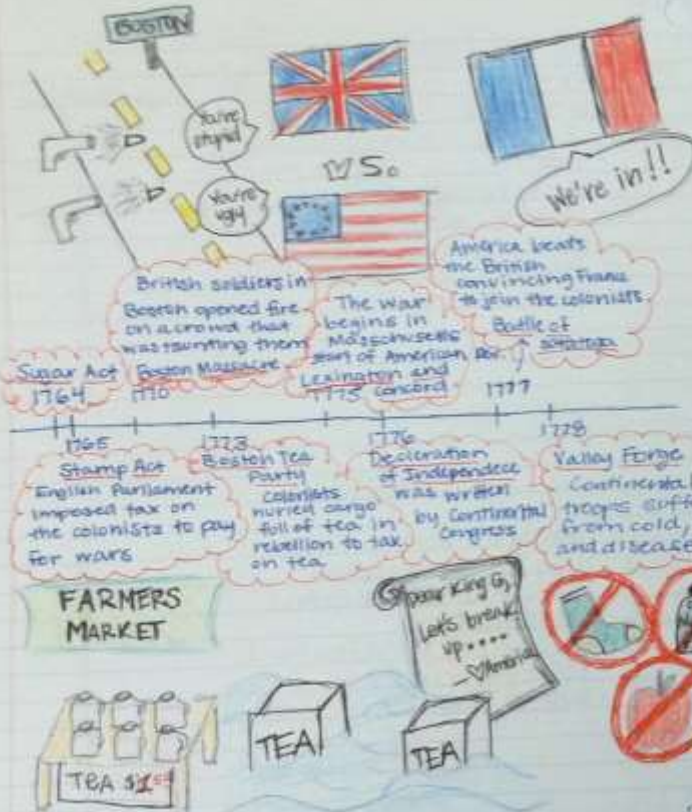 BOSTON
You're
stupid
You're
ugly
VS.
We're in!!
British soldiers in
Boston opened fire
on a crowd that
was taunting them
Boston Massacre
The war
begins in
Massachusetts
start of American
Lexington and
Concord
America beats
the British
convincing France
to join the colonists
Battle of
Sugar Act
1764
1770
1775
1777
1765
1773
1776
1778
Stamp Act
English Parliament
imposed tax on
the colonists to pay
for wars
Boston Tea
Party
Colonists
cargo
full of tea in
rebellion to tax
on tea
Decleration
of Independece
was written
by Continental
Congress
Valley Forge
Continental
troops
from cold,
and disease
FARMERS
MARKET
Dear King G,
Let's break
up....
TEA
TEA
TEA $1